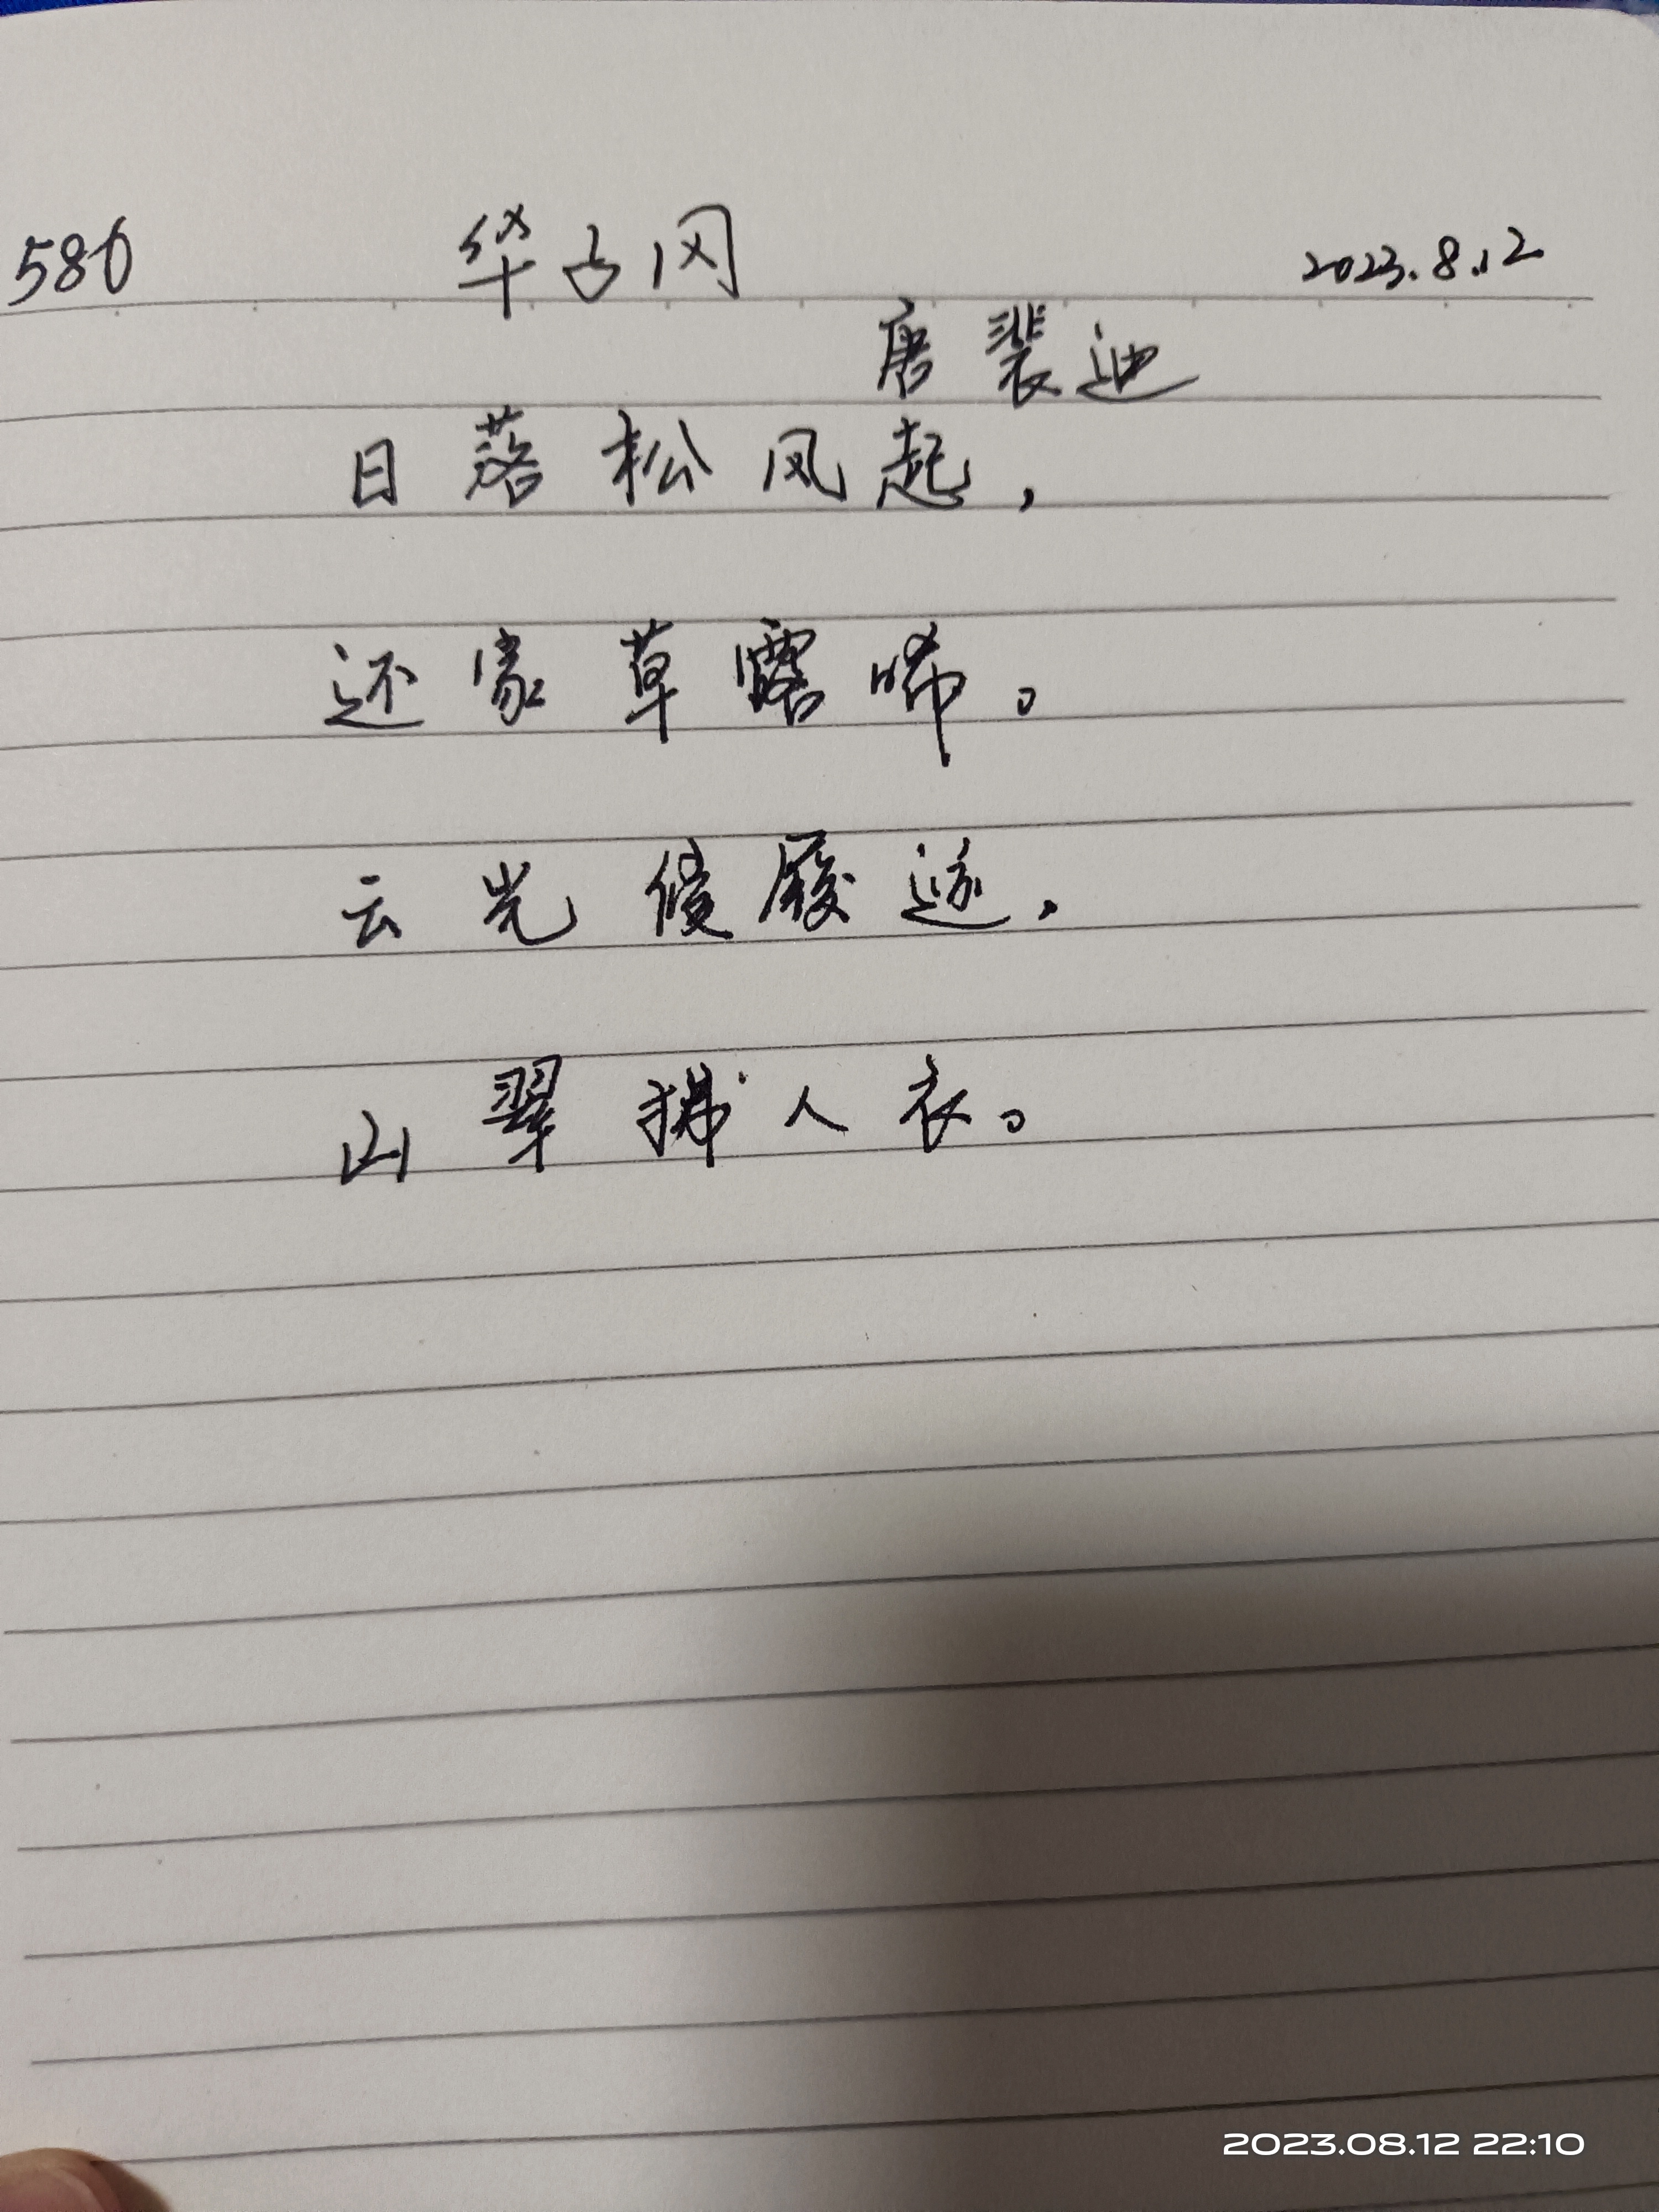 586 华子冈 2023.8.12
唐 裴迪
日落松风起，
还家草露晞。
云光侵履迹，
山翠拂人衣。
2023.08.12 22:10